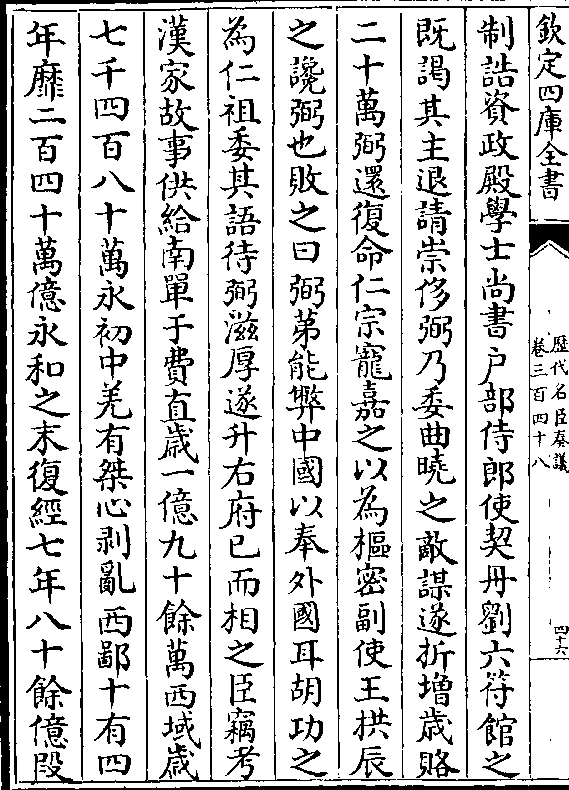 欽定四庫全書
歴代名臣奏議
卷三百四十八
四十六
制誥資政殿學士尚書户部侍郎使契丹劉六符館之
既謁其主退請崇侈弼乃委曲曉之敵謀遂折増歳賂
二十萬弼還復命仁宗寵嘉之以為樞密副使王拱辰
之讒弼也敗之曰弼第能弊中國以奉外國耳胡功之
為仁祖委其語待弼滋厚遂升右府已而相之臣竊考
漢家故事供給南單于費直歳一億九十餘萬西域歳
七千四百八十萬永初中羌有桀心剥亂西鄙十有四
年靡二百四十萬億永和之末復經七年八十餘億段